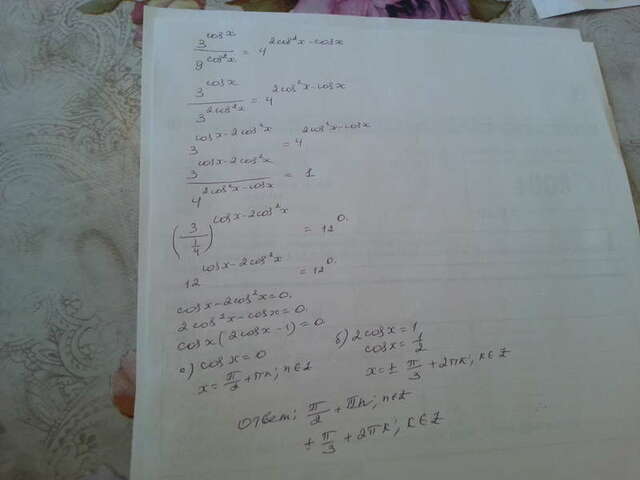 3^cosx / 9^cos²x = 4^2cos²x-cosx
3^cosx / 3^2cos²x = 4^2cos²x-cosx
3^cosx-2cos²x = 4^2cos²x-cosx
3^cosx-2cos²x / 4^2cos²x-cosx = 1
(3 / 1/4)^cosx-2cos²x = 12^0.
12^cosx-2cos²x = 12^0.
cosx-2cos²x=0.
2cos²x-cosx=0.
cosx(2cosx-1)=0.
а) cosx=0
x=π/2+πn; n∈Z
б) 2cosx=1
cosx=1/2
x=± π/3+2πk; k∈Z
Ответ: π/2+πn; n∈Z
± π/3+2πk; k∈Z